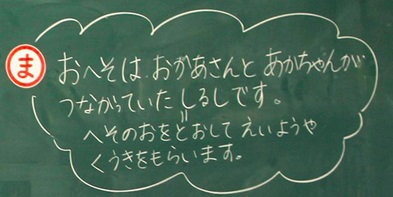 ま
おへそは、おかあさんと あかちゃんが
つながっていた しるしです。
へそのおをとおして えいようや
くうきをもらいます。